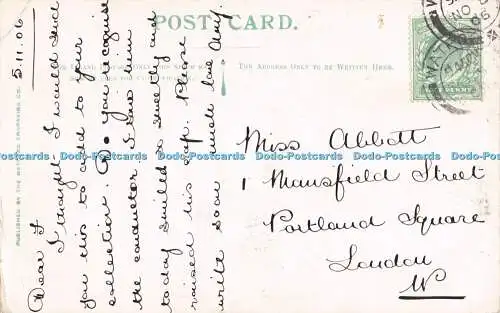 POST CARD.
THE ADDRESS ONLY TO BE WRITTEN HERE.
5.11.06
Dear F
I thought I would send
you this to add to your
collection. Do you recognise
the conductor I saw him
today smiled so sweetly and
raised his cap. Please
write soon much love Amy
Miss Abbott
1 Mansfield Street
Portland Square
London
W
PUBLISHED BY THE
Dodo-Postcards Dodo-Postcards Dodo-Postcards Dodo-Postcards Dodo-Postcards Dodo-Postcards